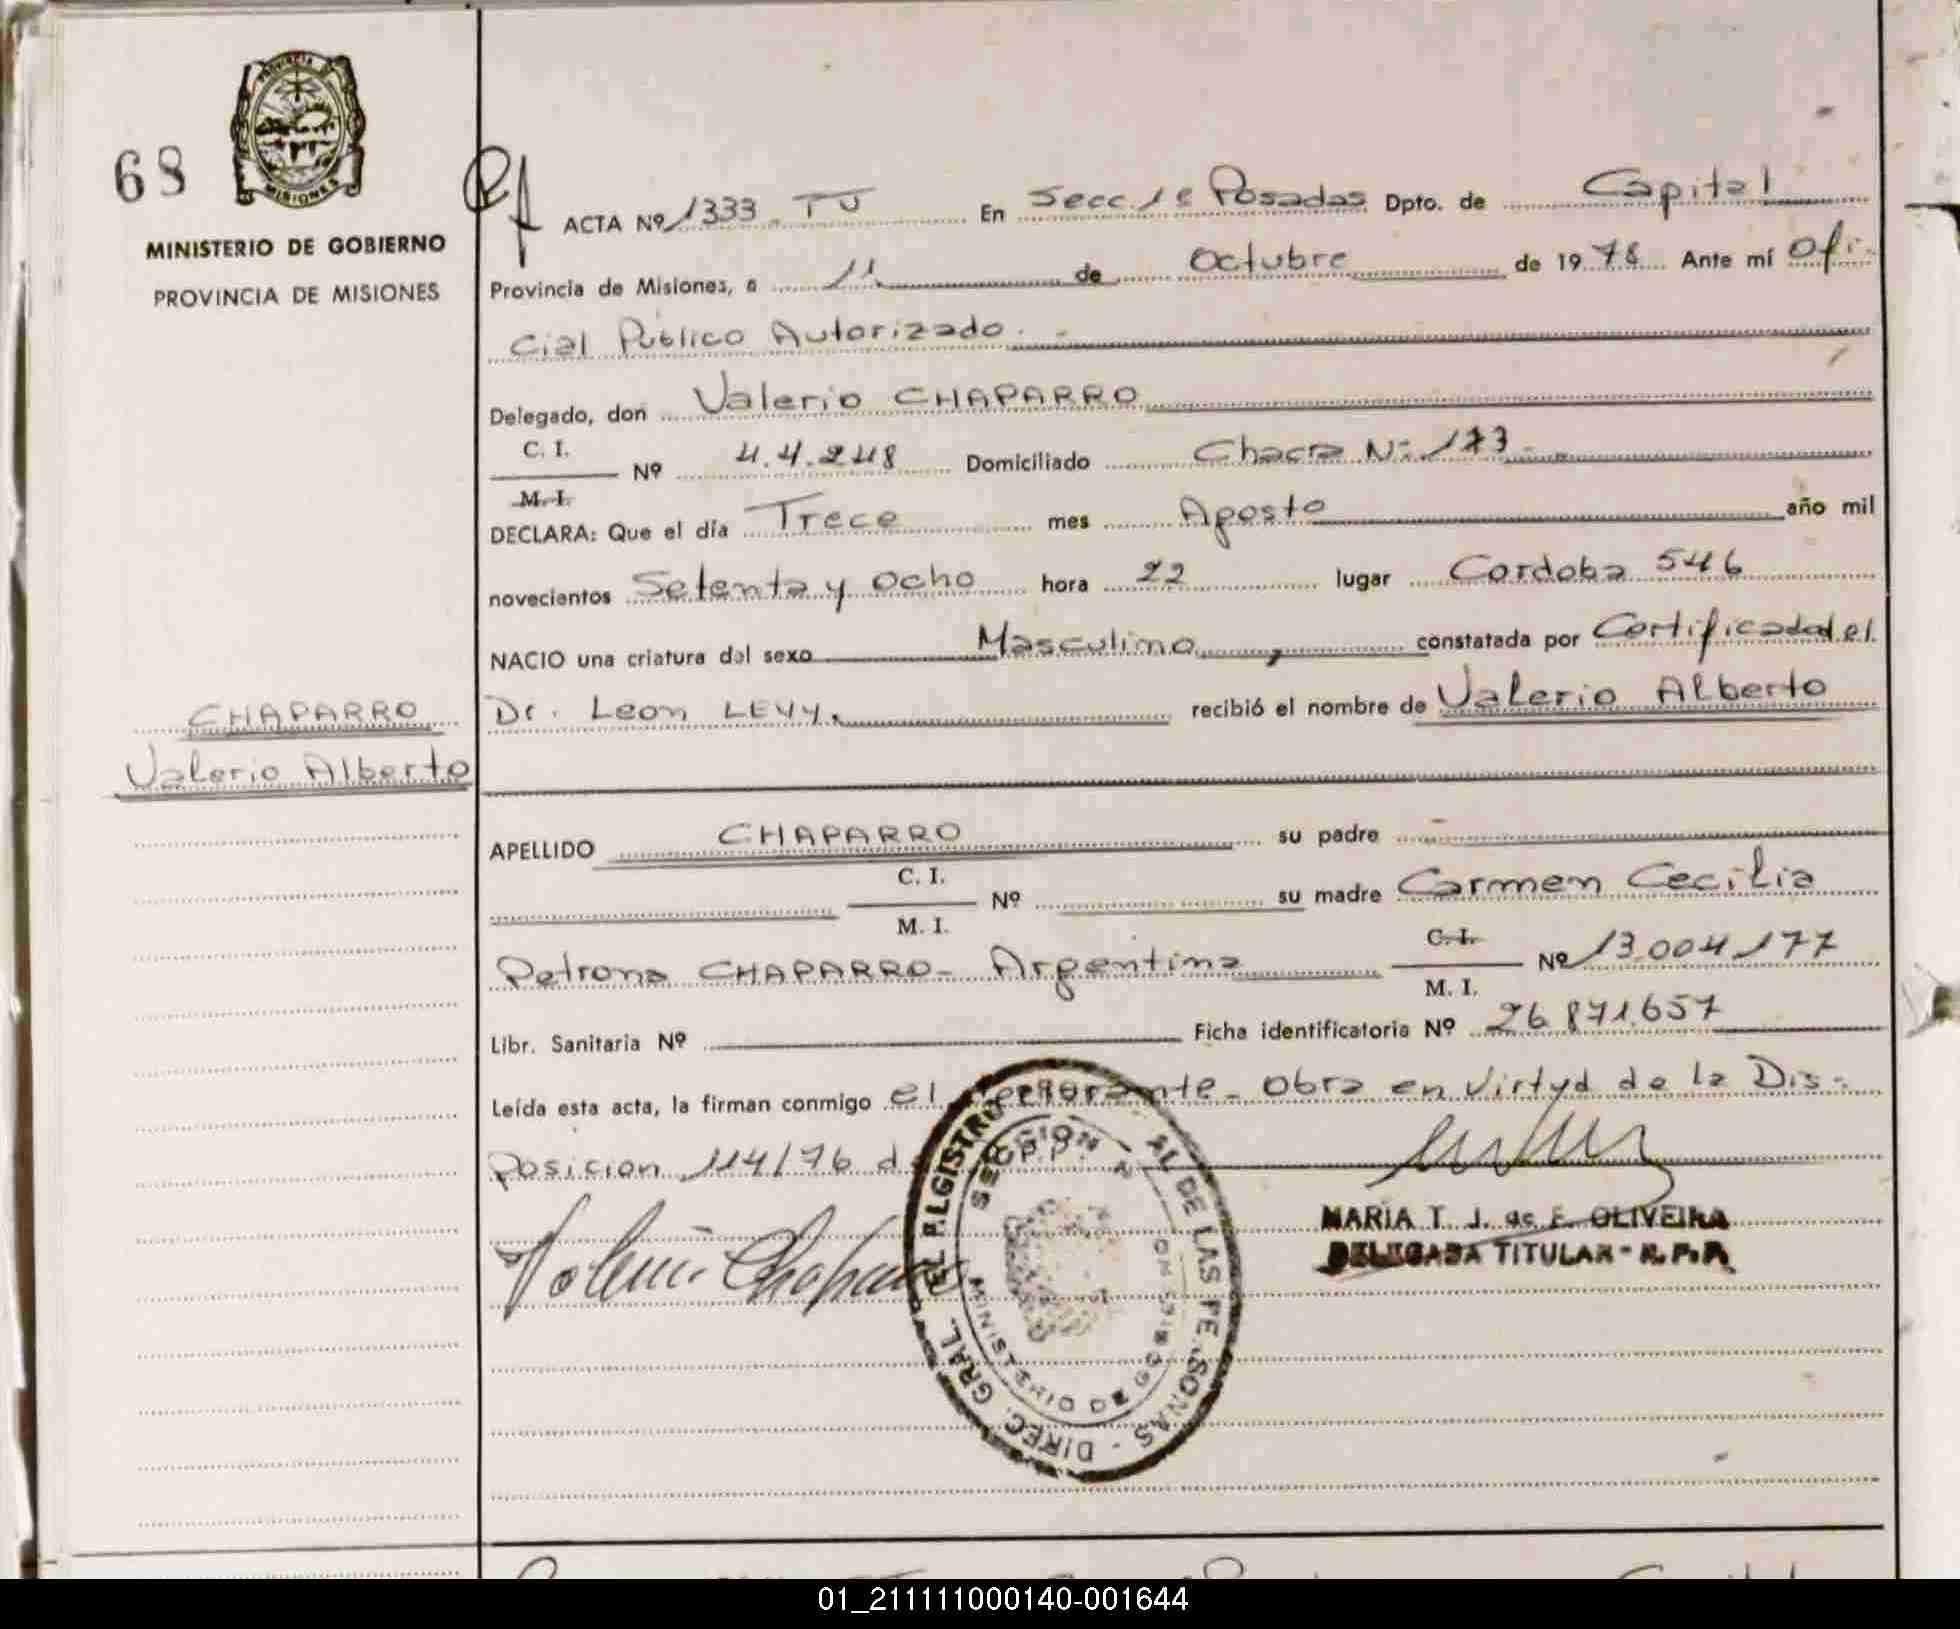 68
PROVINCIA DE
MISIONES
MINISTERIO DE GOBIERNO
PROVINCIA DE MISIONES
CHAPARRO
Valerio Alberto
ACTA Nº 1333 TU En Secc. 1e Posadas Dpto. de Capital
Provincia de Misiones, a 11 de Octubre de 1978 Ante mí Ofi-
cial Público Autorizado.
Delegado, don Valerio CHAPARRO
C. I.
Nº 4.4.248 Domiciliado Chacra Nº 173
M. I.
DECLARA: Que el día Trece mes Agosto año mil
novecientos Setenta y Ocho hora 22 lugar Cordoba 546
NACIO una criatura del sexo Masculino constatada por Certificado del
Dr. Leon LEVY recibió el nombre de Valerio Alberto
APELLIDO CHAPARRO su padre
C. I.
Nº su madre Carmen Cecilia
M. I.
Petrona CHAPARRO- Argentina C. I. Nº 13.004.177
M. I.
Libr. Sanitaria Nº Ficha identificatoria Nº 26.871.657
Leída esta acta, la firman conmigo el declarante- Obra en Virtyd de la Dis-
posicion 114/76
Valerio Chaparro
MARIA T. J. de F. OLIVEIRA
DELEGADA TITULAR - R.P.P.
DIREC. GRAL. DEL REGISTRO
AL DE LAS PERSONAS
SECCION
01_211111000140-001644